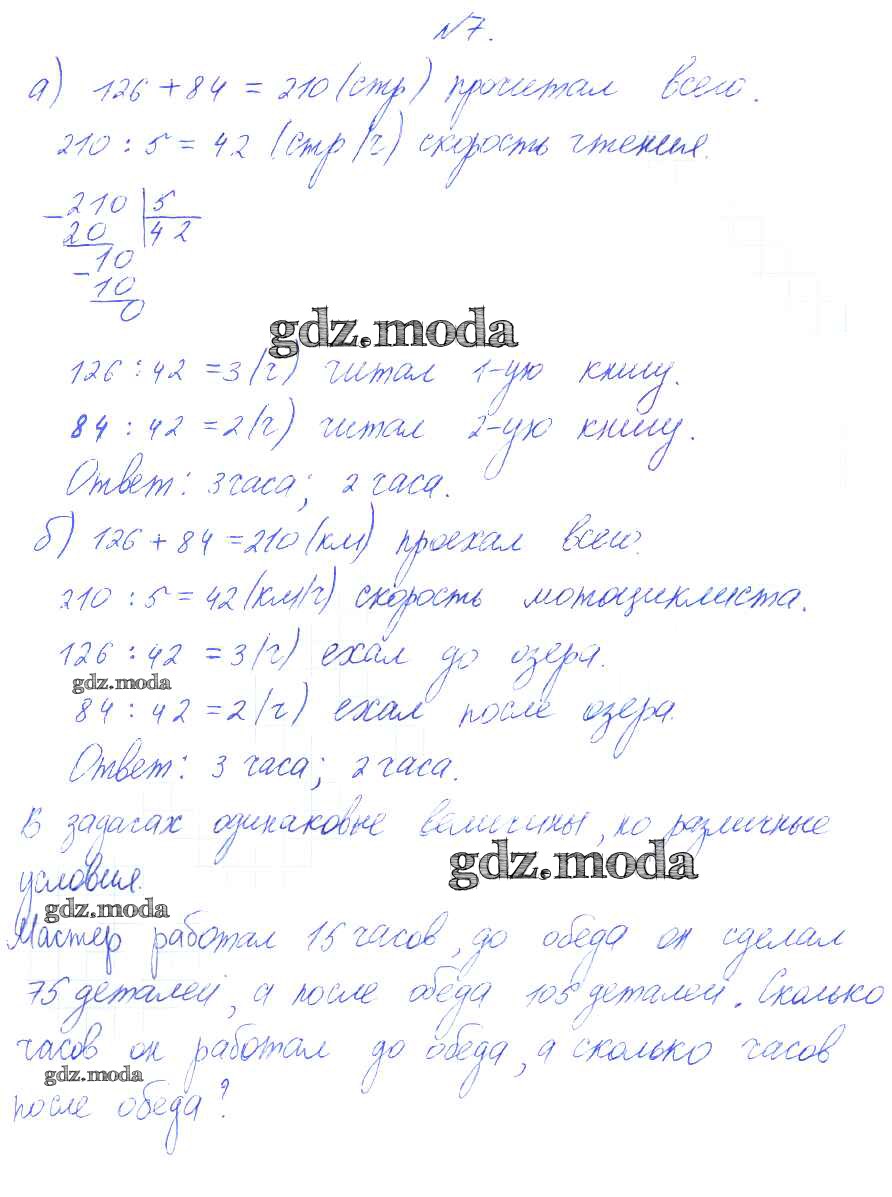 №7.
а) 126 + 84 = 210 (стр) прочитал всего.
210 : 5 = 42 (стр/ч) скорость чтения.
− 210 | 5
20 | 42
− 10
10
0
gdz.moda
126 : 42 = 3 (ч) читал 1-ую книгу.
84 : 42 = 2 (ч) читал 2-ую книгу.
Ответ: 3 часа; 2 часа.
б) 126 + 84 = 210 (км) проехал всего.
210 : 5 = 42 (км/ч) скорость мотоциклиста.
126 : 42 = 3 (ч) ехал до озера.
gdz.moda
84 : 42 = 2 (ч) ехал после озера.
Ответ: 3 часа; 2 часа.
В задачах одинаковые величины, но различные
gdz.moda
условия.
gdz.moda
Мастер работал 15 часов, до обеда он сделал
75 деталей, а после обеда 105 деталей. Сколько
часов он работал до обеда, а сколько часов
gdz.moda
после обеда?